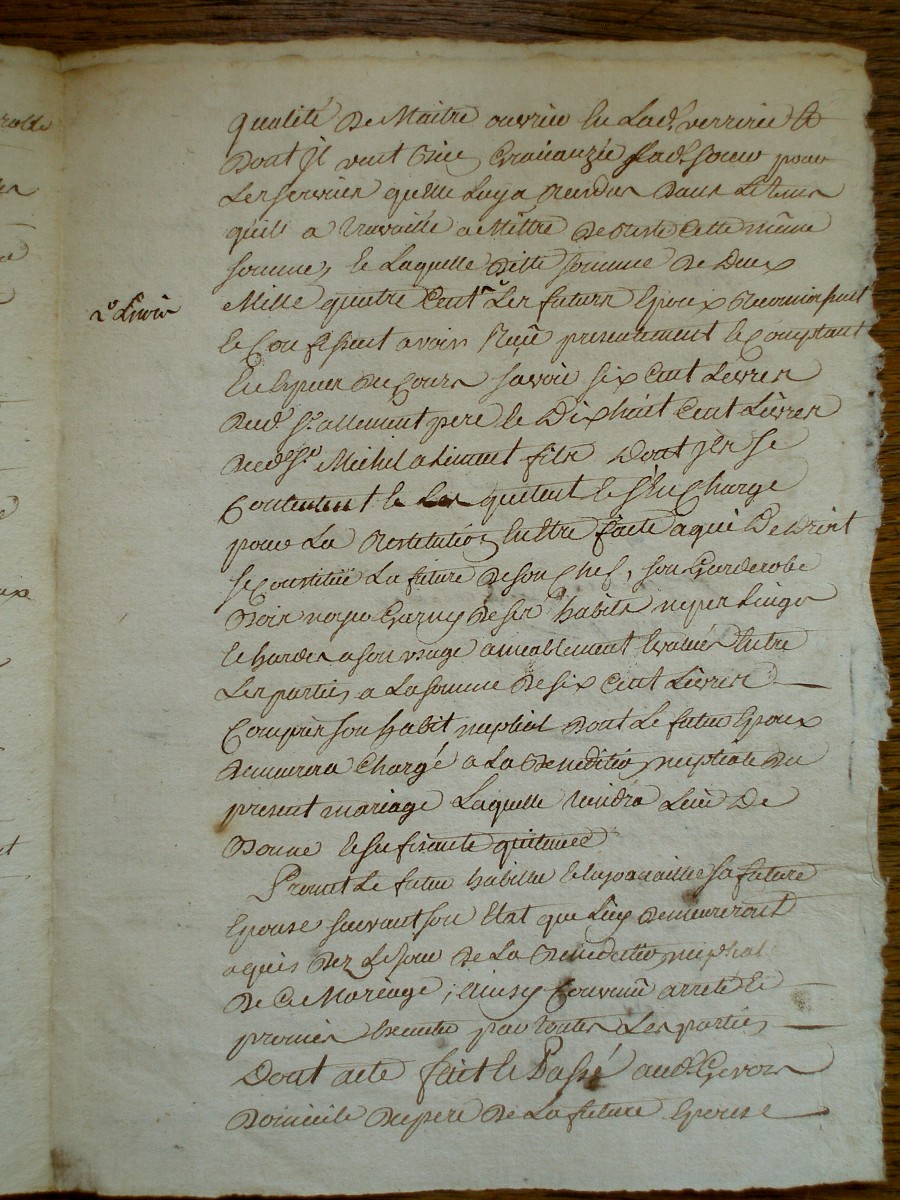 qualité de Maitre ouvrier en Lad. verrerie &
Dont Jl veut que lad. soeur pour
Les services quelle Luy a rendus dans Le tems
quil a travaillé a Mettre de reste cette même
somme, et Laquelle ditte somme de Deux
Mille quatre Cent Les futurs Epoux reconnoissent
2° Livres
et Confessent avoir Reçû presentement et Comptant
En Espece de Cours savoir six Cent Livres
dud. Sr. allement pere et Dix huit Cent Livres
dud. Sr. Michel aliment fils Dont jls se
Contentent et Les quitent et s'En Charge
pour La restitution En Etre faite a qui De Droit
se Constituë La future de son Chef, son Garderobe
Bois noyer Garny de ses habits neger Linges
et hardes a son usage amiablement Evalués Entre
Les parties a La somme de six Cent Livres
Compris son habit nuptial dont Le futur Epoux
demeurera Chargé a La Benediction nuptiale du
present mariage Laquelle tiendra Lieu De
Bonne et sufisante quitance
Promet Le futur habiller et la future
Epouse suivant son Etat que Luy demeureront
aquis dez Le jour de La Benediction nuptiale
de Ce Mariage ; ainsy Convenû arreté et
promis Executer par toutes Les parties
Dont acte fait et Passé aud. Givors
Domicile du pere de La future Epouse